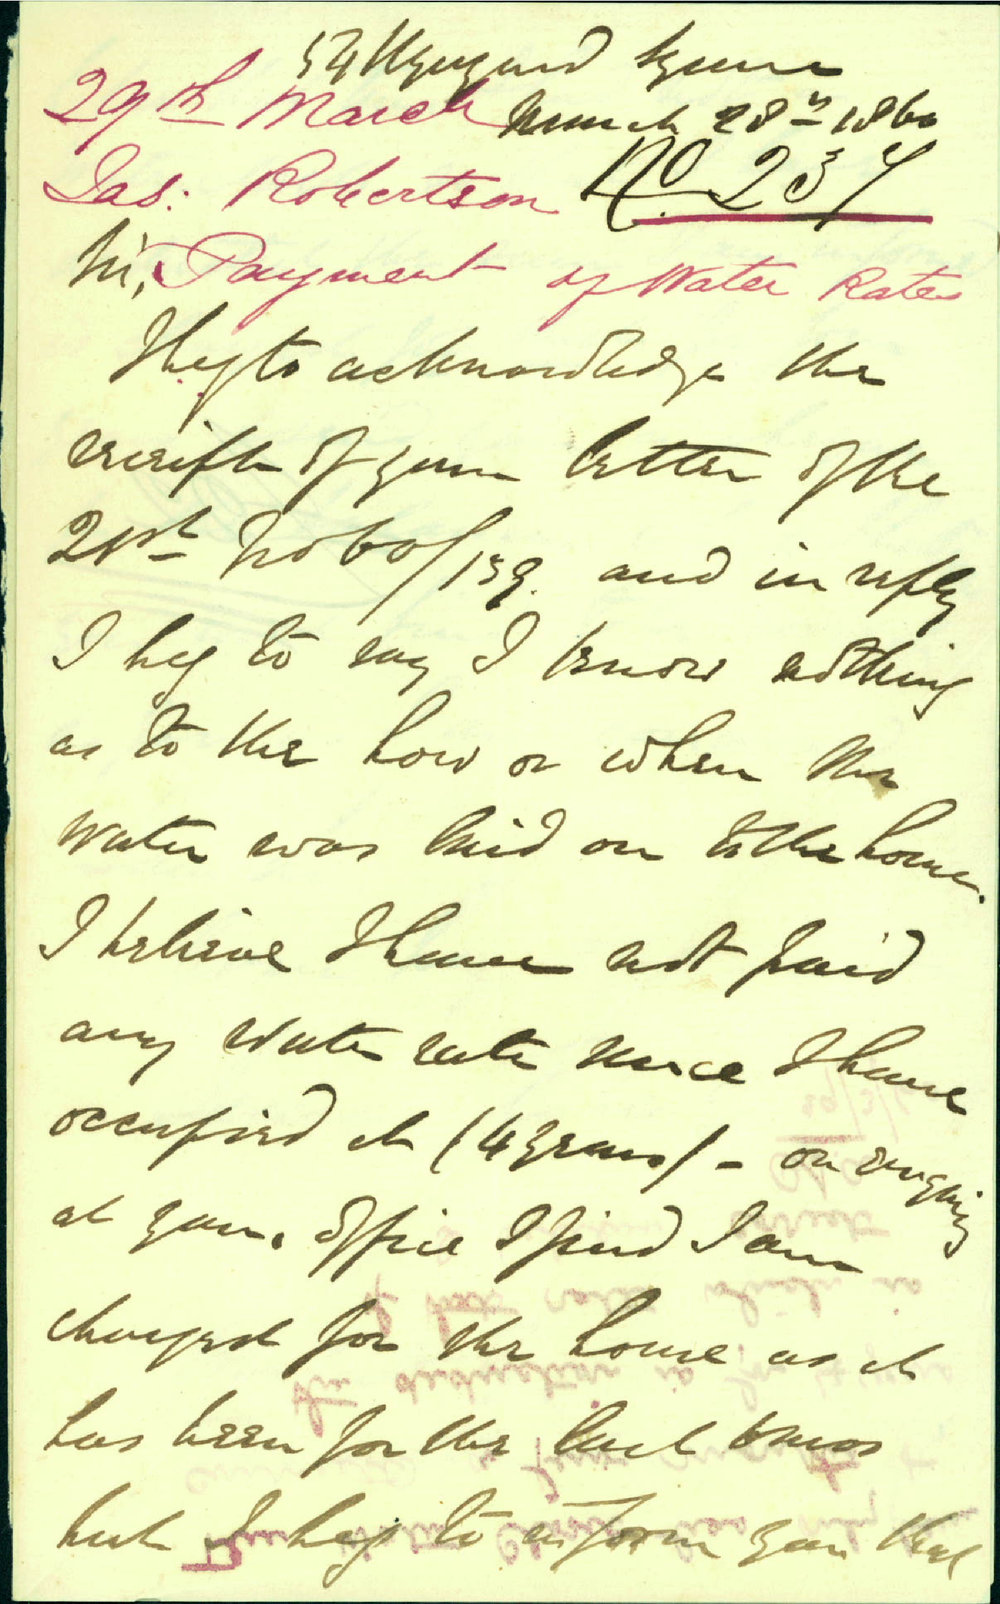 54 Wynyard Square
29th March March 28th 1860
Jas: Robertson No 237
Sir, Payment of Water Rates
I beg to acknowledge the
receipt of your letter of the
21st No 60/139. and in reply
I beg to say I know nothing
as to the how or when the
water was laid on to the house.
I believe I have not paid
any water rate since I have
occupied it (4 years) - on enquiry
at your office I find I am
charged for the house as it
has been for the last
but I beg to inform you that